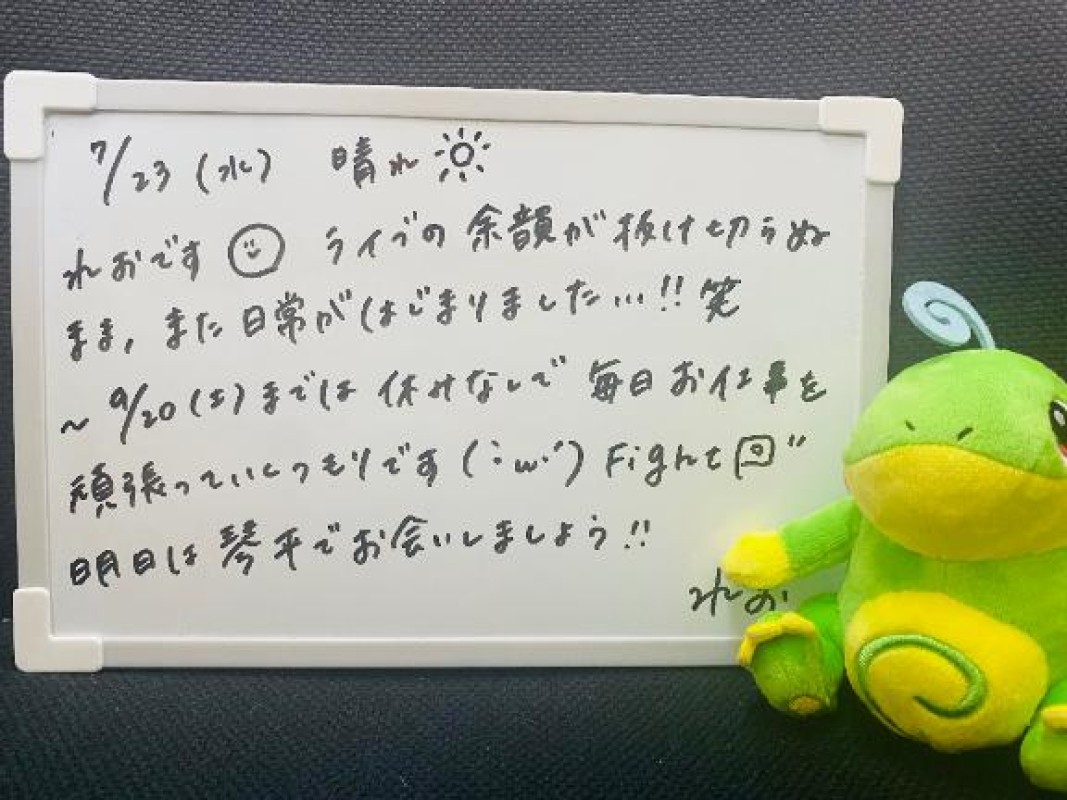 7/23 (水) 晴れ
れおです ライブの余韻が抜け切らぬ
まま, また日常がはじまりました...!! 笑
~9/20(土)までは休みなしで毎日お仕事を
頑張っていくつもりです(´ω`) Fight
明日は琴平でお会いしましょう!!
れお